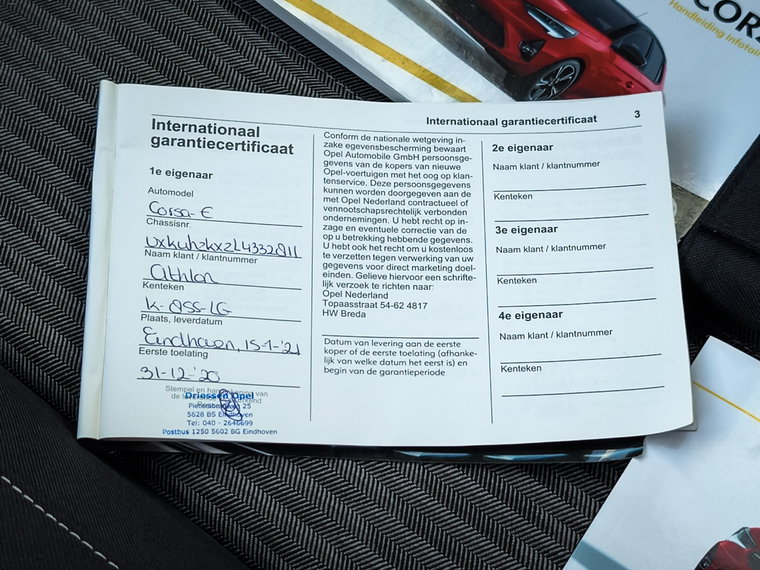 CORS
Handleiding Infotain
Internationaal garantiecertificaat 3
Internationaal
garantiecertificaat
1e eigenaar
Automodel
Corsa-E
Chassisnr.
Naam klant / klantnummer
Athlon
Kenteken
Plaats, leverdatum
Eindhoven, 15-1-'21
Eerste toelating
31-12-'20
Stempel en van
Driessen Opel
25
5628 BS Eindhoven
Tel: 040 - 2646699
Postbus 1250 5602 BG Eindhoven
Conform de nationale wetgeving in-
zake egevensbescherming bewaart
Opel Automobile GmbH persoonsge-
gevens van de kopers van nieuwe
Opel-voertuigen met het oog op klan-
tenservice. Deze persoonsgegevens
kunnen worden doorgegeven aan de
met Opel Nederland contractueel of
vennootschapsrechtelijk verbonden
ondernemingen. U hebt recht op in-
zage en eventuele correctie van de
op u betrekking hebbende gegevens.
U hebt ook het recht om u kosteloos
te verzetten tegen verwerking van uw
gegevens voor direct marketing doel-
einden. Gelieve hiervoor een schrifte-
lijk verzoek te richten naar:
Opel Nederland
Topaasstraat 54-62 4817
HW Breda
Datum van levering aan de eerste
koper of de eerste toelating (afhanke-
lijk van welke datum het eerst is) en
begin van de garantieperiode
2e eigenaar
Naam klant / klantnummer
Kenteken
3e eigenaar
Naam klant / klantnummer
Kenteken
4e eigenaar
Naam klant / klantnummer
Kenteken